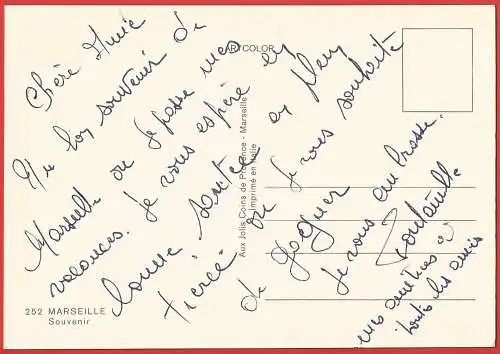 Chère Annie
Un bon souvenir de
Marseille ou je passe mes
vacances. Je vous espère en
bonne santé et plein
tiercé ou je vous souhaite
de gagner
Je vous embrasse.
mes amitiés à
toutes les amies
ARTCOLOR
Aux Jolis Coins de Provence - Marseille
Imprimé en Italie
252 MARSEILLE
Souvenir